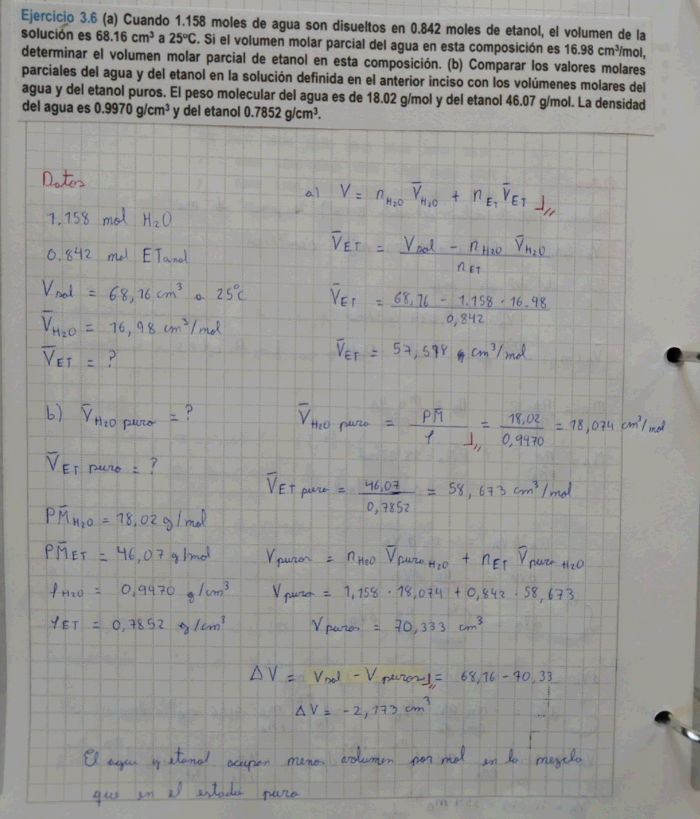 Ejercicio 3.6 (a) Cuando 1.158 moles de agua son disueltos en 0.842 moles de etanol, el volumen de la
solución es 68.16 cm³ a 25ºC. Si el volumen molar parcial del agua en esta composición es 16.98 cm³/mol,
determinar el volumen molar parcial de etanol en esta composición. (b) Comparar los valores molares
parciales del agua y del etanol en la solución definida en el anterior inciso con los volúmenes molares del
agua y del etanol puros. El peso molecular del agua es de 18.02 g/mol y del etanol 46.07 g/mol. La densidad
del agua es 0.9970 g/cm³ y del etanol 0.7852 g/cm³.
Datos
1.158 mol H₂O
0.842 mol ETanol
Vsol = 68,16 cm³ a 25°C
V̄H₂O = 16,98 cm³/mol
V̄ET = ?
a) V = nH₂O V̄H₂O + nET V̄ET
V̄ET = Vsol - nH₂O V̄H₂O / nET
V̄ET = 68,16 - 1.158 · 16.98 / 0,842
V̄ET = 57,598 cm³/mol
b) V̄H₂O puro = ?
V̄ET puro = ?
PM̄H₂O = 18,02 g/mol
PM̄ET = 46,07 g/mol
ρH₂O = 0,9970 g/cm³
ρET = 0,7852 g/cm³
V̄H₂O puro = PM̄ / ρ = 18,02 / 0,9970 = 18,074 cm³/mol
V̄ET puro = 46,07 / 0,7852 = 58,673 cm³/mol
Vpuros = nH₂O V̄puro H₂O + nET V̄puro H₂O
Vpuros = 1,158 · 18,074 + 0,842 · 58,673
Vpuros = 70,333 cm³
ΔV = Vsol - Vpuros = 68,16 - 70,33
ΔV = -2,173 cm³
El agua y etanol ocupan menos volumen por mol en la mezcla
que en el estado puro